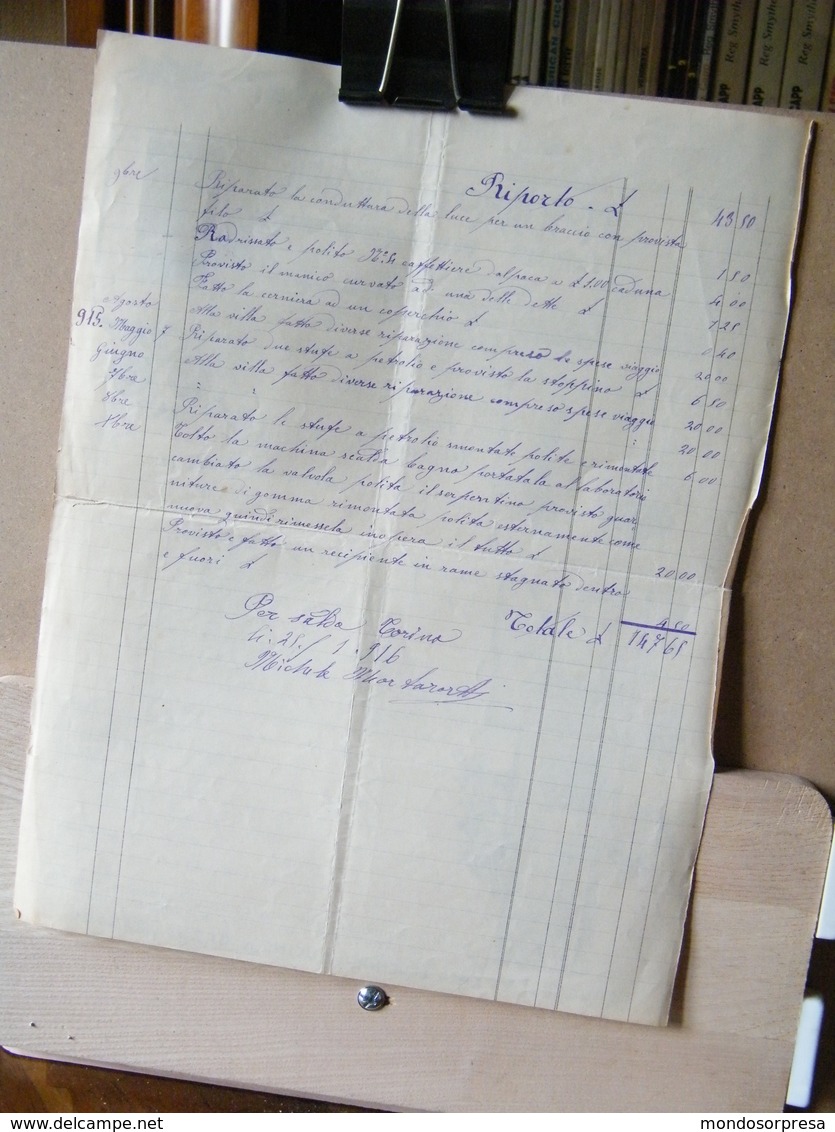 Riporto - £ 43 80
9bre Riparato la conduttura della luce per un braccio con provista
filo £ 1 80
Radrissato e polito N° 4 caffettiere alpaca a £ 1.00 caduna 4 00
Provisto il manico curvato ad una delle dette £ 1 25
Fatto la cerniera ad un coperchio £ 0 40
Agosto Alla villa fatto diverse riparazione compreso le spese viaggio 20 00
915. Maggio 7 Riparato due stufe a petrolio e provisto la stoppino £ 6 80
Giugno Alla villa fatto diverse riparazione compreso spese viaggio 20 00
7bre " " " 20 00
8bre Riparato le stufe a petrolio smontate polite e rimontate 6 00
8bre Tolto la machina scalda bagno portatala al laboratorio
cambiato la valvola polita il serpentino provisto guar
niture di gomma rimontata polita esternamente come
nuova quindi rimessela in opera il tutto £ 20 00
Provisto e fatto un recipiente in rame stagnato dentro
e fuori £ 4 50
Totale £ 147 65
Per saldo Torino
li. 25/1. 916
Michele
Reg Smythe
Reg Smythe
ZAPP
ZAPP
delcampe.net
mondosorpresa